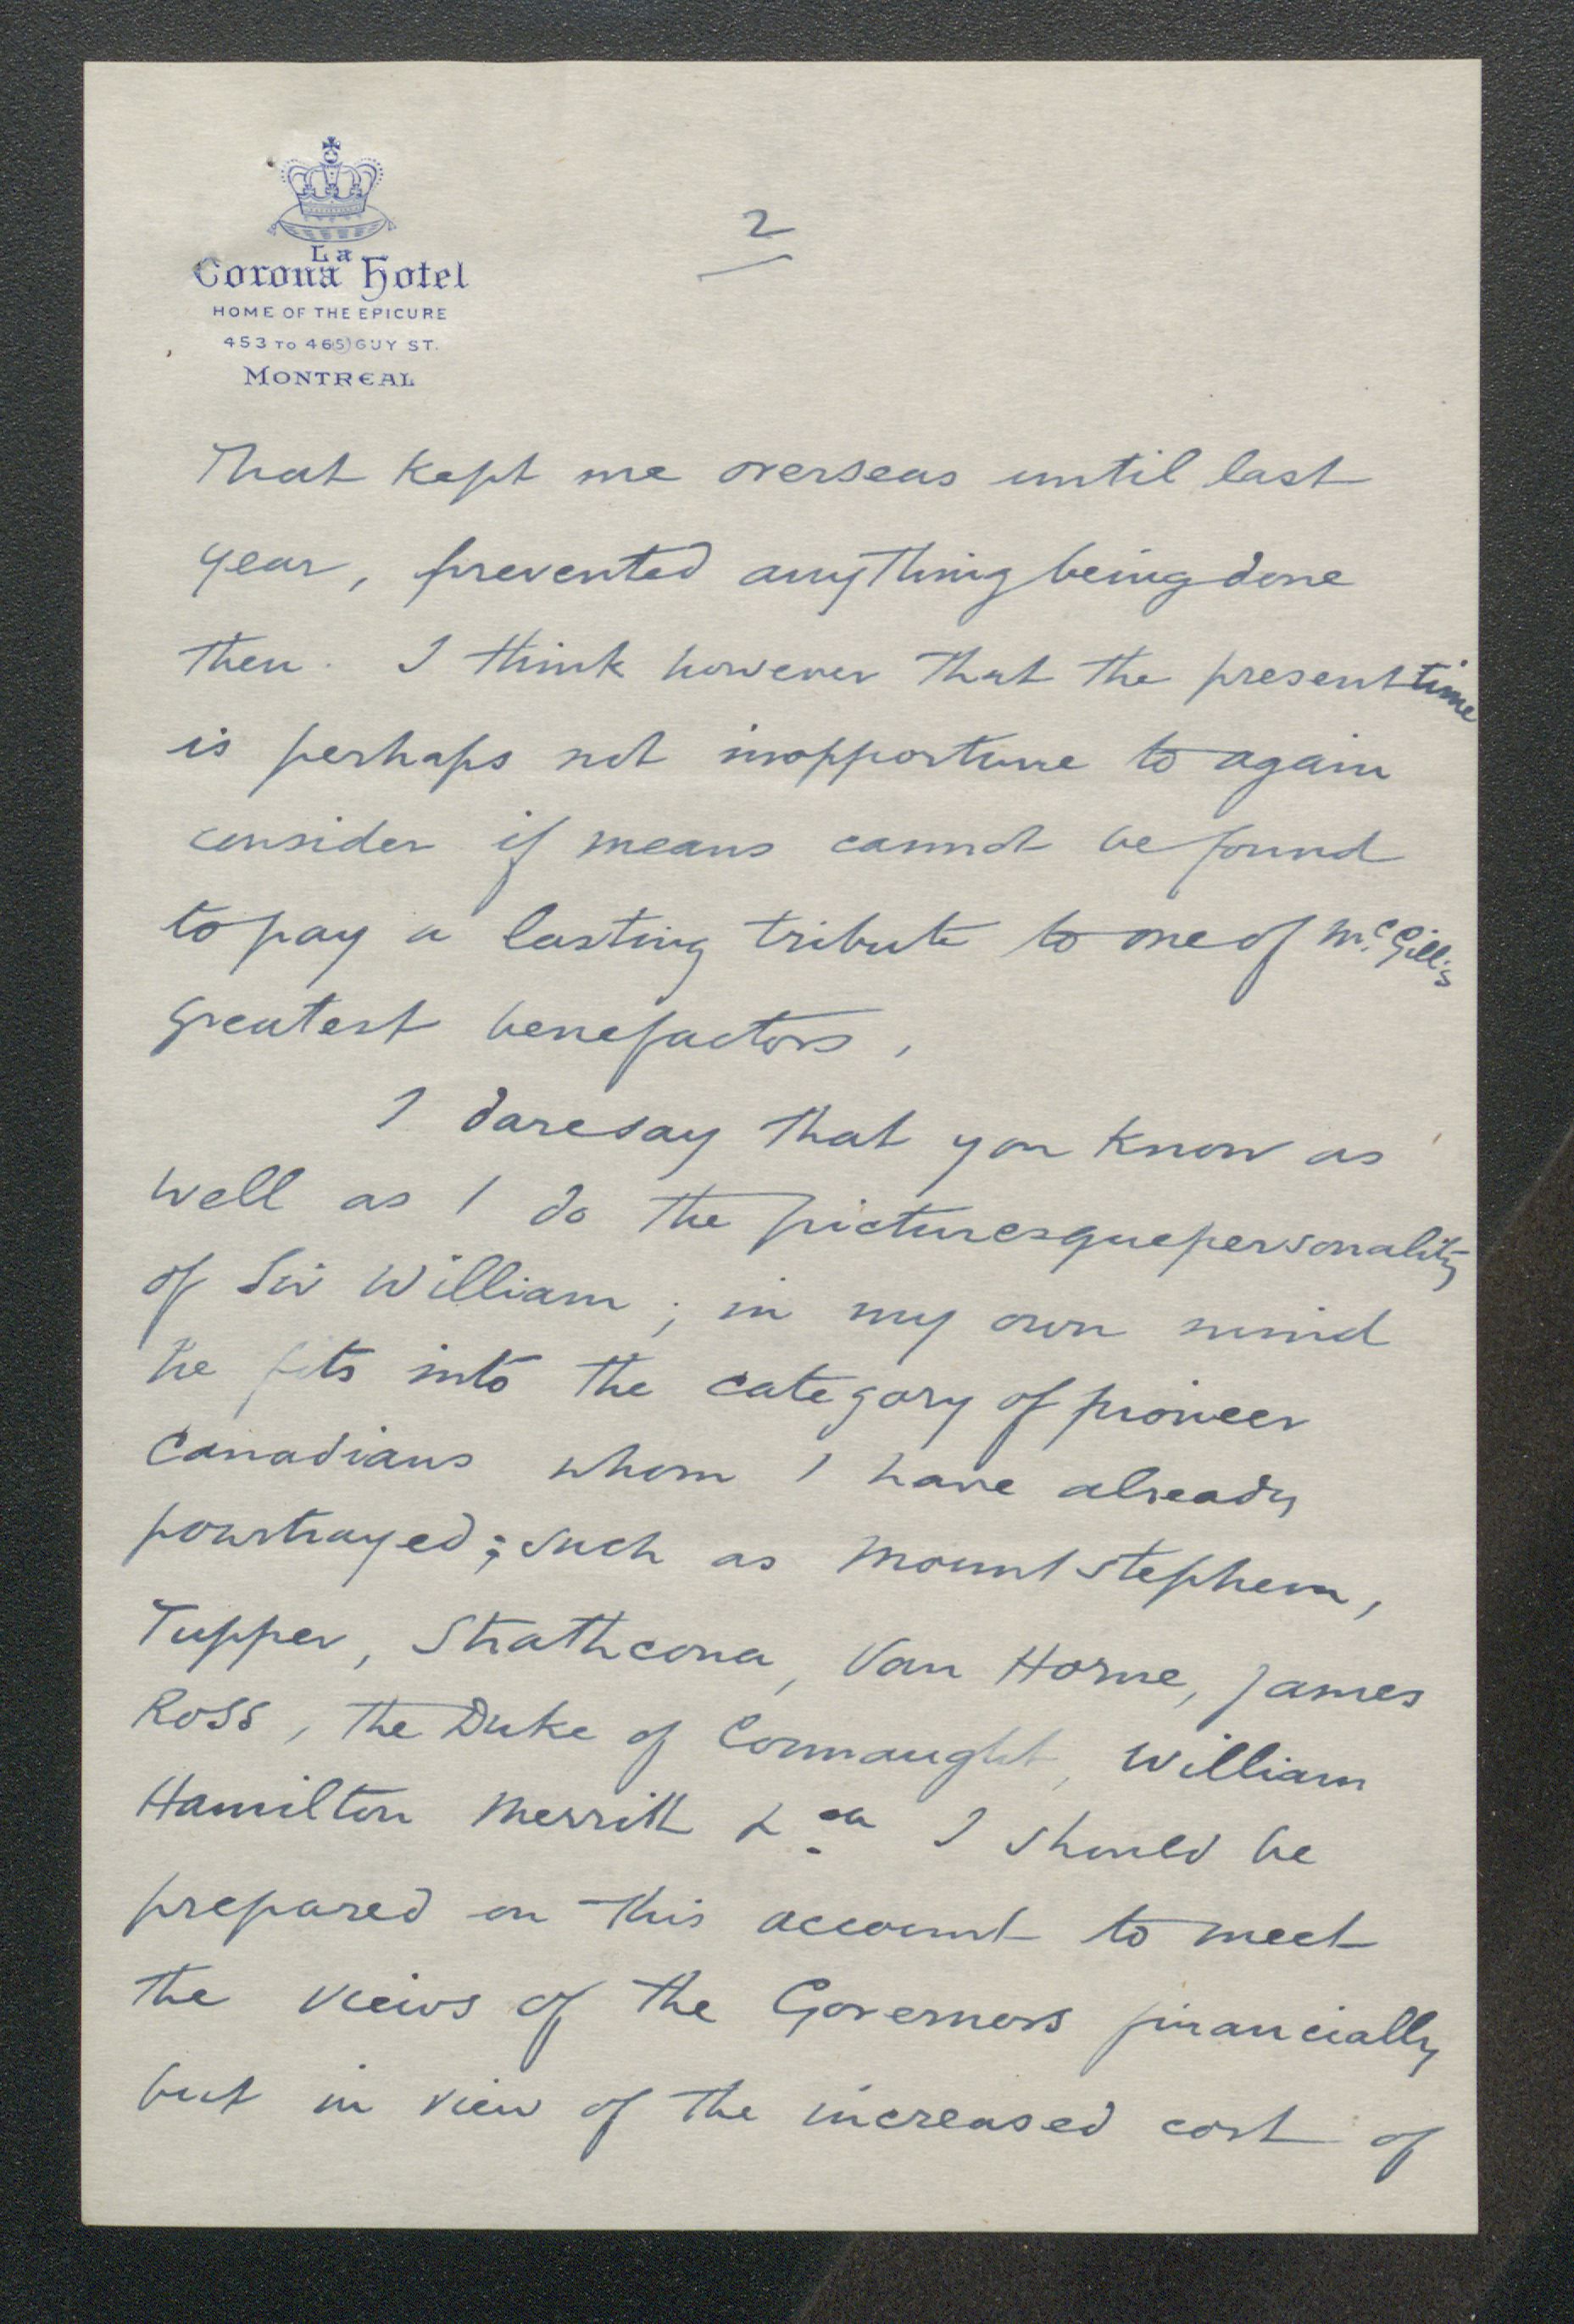 2
La
Corona Hotel
HOME OF THE EPICURE
453 TO 465 GUY ST.
MONTREAL
That kept me overseas until last
year, prevented anything being done
then. I think however that the present time
is perhaps not inopportune to again
consider if means cannot be found
to pay a lasting tribute to one of McGill's
greatest benefactors.
I daresay that you know as
well as I do the picturesque personality
of Sir William; in my own mind
he fits into the category of pioneer
Canadians whom I have already
pourtrayed; such as Mount Stephen,
Tupper, Strathcona, Van Horne, James
Ross, the Duke of Connaught, William
Hamilton Merritt &ca I should be
prepared on this account to meet
the views of the Governors financially
but in view of the increased cost of